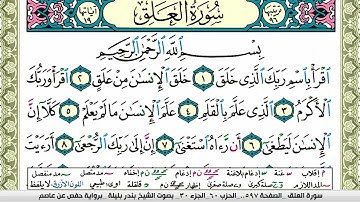 سُورَةُ العَلَقِ
بِسْمِ اللَّهِ الرَّحْمَٰنِ الرَّحِيمِ
ٱقۡرَأۡ بِٱسۡمِ رَبِّكَ ٱلَّذِي خَلَقَ ١ خَلَقَ ٱلۡإِنسَٰنَ مِنۡ عَلَقٍ ٢ ٱقۡرَأۡ وَرَبُّكَ
ٱلۡأَكۡرَمُ ٣ ٱلَّذِي عَلَّمَ بِٱلۡقَلَمِ ٤ عَلَّمَ ٱلۡإِنسَٰنَ مَا لَمۡ يَعۡلَمۡ ٥ كَلَّآ إِنَّ
ٱلۡإِنسَٰنَ لَيَطۡغَىٰٓ ٦ أَن رَّءَاهُ ٱسۡتَغۡنَىٰٓ ٧ إِنَّ إِلَىٰ رَبِّكَ ٱلرُّجۡعَىٰٓ ٨ أَرَءَيۡتَ
سورة العلق _ الصفحة ٥٩٧ _ الحزب ٦٠ _ الجزء ٣٠ _ بصوت الشيخ بندر بليلة _ برواية حفص عن عاصم